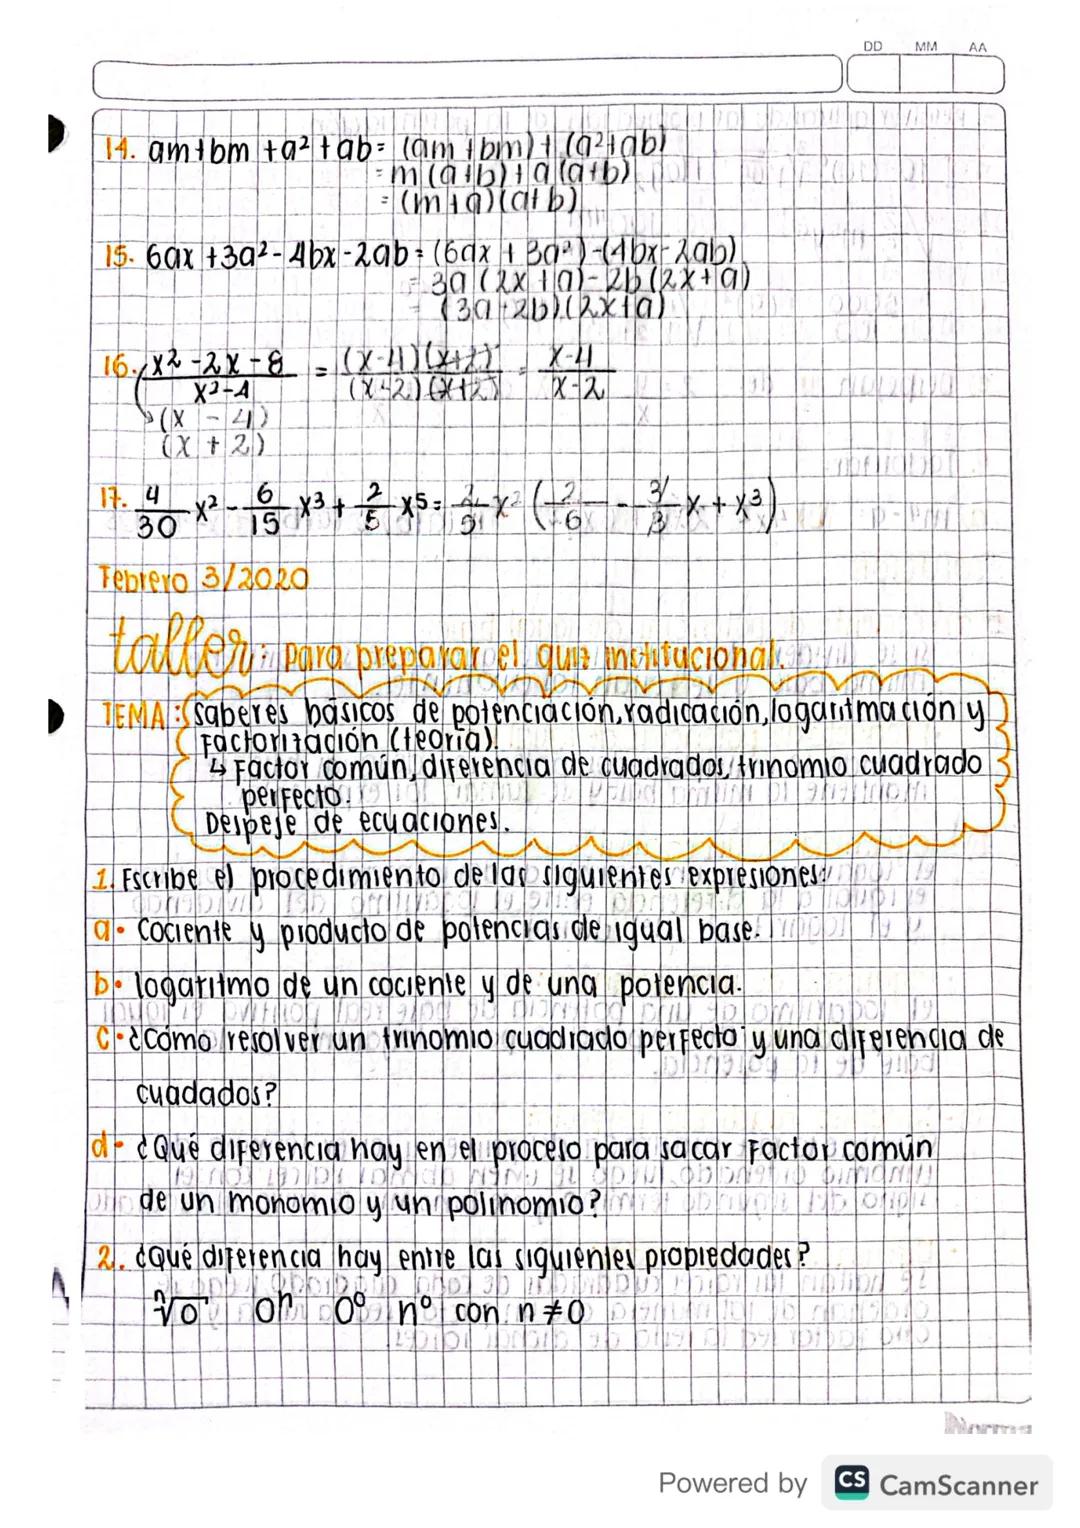 DD MM AA
14. am+bm +a² +ab = (am+bm)+(a²+ab)
= m(a+b)+a(a+b)
= (m+a)(a+b)
15. 6ax +3a² - 4bx -2ab = (6ax + 3a²)-(4bx-2ab)
= 3a(2x+a)-2b(2x+a)
= (3a-2b)(2x+a)
16. x² -2x -8 / x²-4 = (x-4)(x+2) / (x-2)(x+2) = x-4 / x-2
(x - 4)
(x + 2)
17. 4/30 x² - 6/15 x³ + 2/5 x⁵ = 2/5 x² (2/6 - 3/3 x + x³)
Febrero 3/2020
taller: para preparar el quiz institucional.
TEMA: saberes básicos de potenciación, radicación, logaritmación y
Factorización (teoría).
↳ Factor común, diferencia de cuadrados, trinomio cuadrado
perfecto.
Despeje de ecuaciones.
1. Escribe el procedimiento de las siguientes expresiones:
a. Cociente y producto de potencias de igual base.
b. logaritmo de un cociente y de una potencia.
c. ¿Cómo resolver un trinomio cuadrado perfecto y una diferencia de
cuadados?
d. ¿Qué diferencia hay en el proceso para sacar Factor común
de un monomio y un polinomio?
2. ¿Qué diferencia hay entre las siguientes propiedades?
ⁿ√0 0ⁿ 0⁰ n⁰ con n≠0
Norma
Powered by CS CamScanner